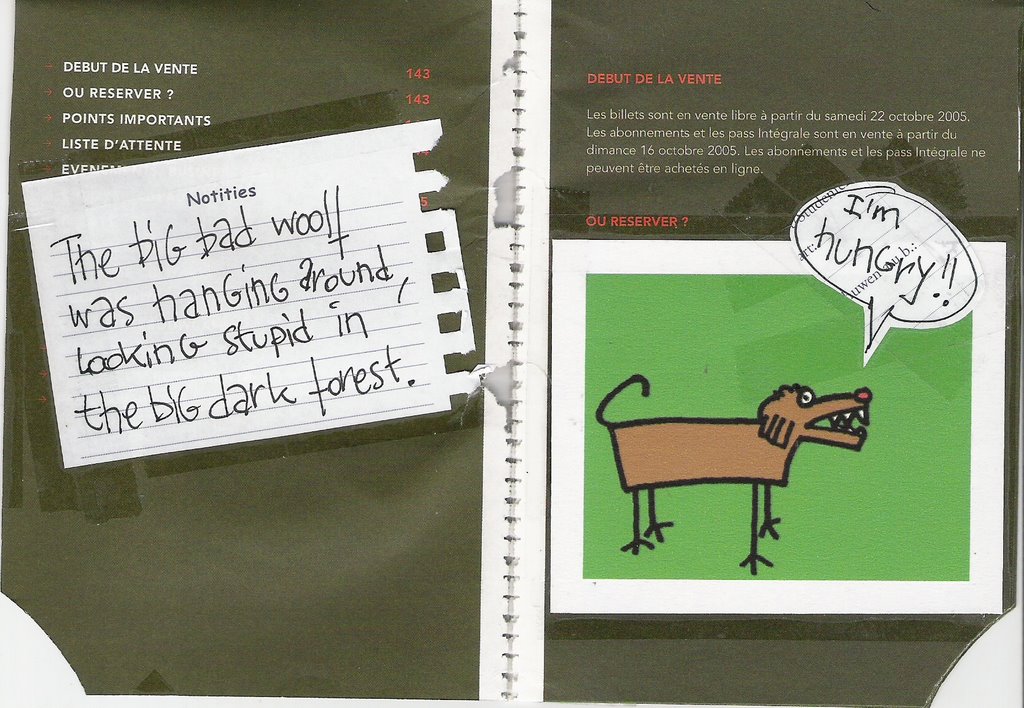 DEBUT DE LA VENTE 143
OU RESERVER ? 143
POINTS IMPORTANTS
LISTE D'ATTENTE
Notities
The big bad woolf
was hanging around,
looking stupid in
the big dark forest.
DEBUT DE LA VENTE
Les billets sont en vente libre à partir du samedi 22 octobre 2005.
Les abonnements et les pass Intégrale sont en vente à partir du
dimance 16 octobre 2005. Les abonnements et les pass Intégrale ne
peuvent être achetés en ligne.
OU RESERVER ?
I'm
hungry!!